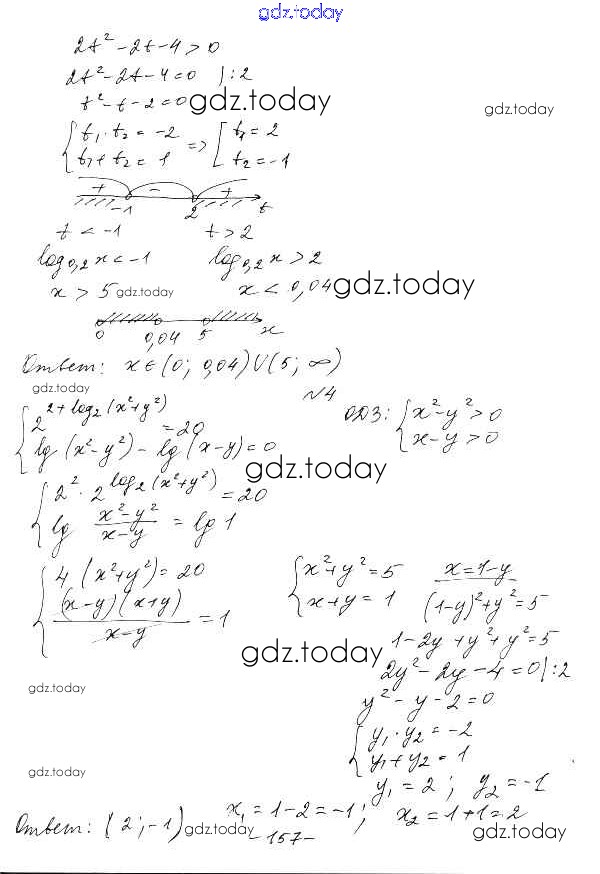 gdz.today
2t² - 2t - 4 > 0
2t² - 2t - 4 = 0 | : 2
t² - t - 2 = 0 gdz.today gdz.today
{ t₁ · t₂ = -2
t₁ + t₂ = 1 => [ t₁ = 2
t₂ = -1
+ - +
-1 2 t
t < -1 t > 2
log₀,₂ x < -1 log₀,₂ x > 2
x > 5 gdz.today x < 0,04 gdz.today
0 0,04 5 x
Ответ: x ∈ (0; 0,04) ∪ (5; ∞)
gdz.today
N4
{ 2^(2 + log₂(x² + y²)) = 20
lg(x² - y²) - lg(x - y) = 0
ОДЗ: { x² - y² > 0
x - y > 0
gdz.today
{ 2² · 2^(log₂(x² + y²)) = 20
lg (x² - y²)/(x - y) = lg 1
{ 4(x² + y²) = 20
(x - y)(x + y)/(x - y) = 1
{ x² + y² = 5
x + y = 1
x = 1 - y
(1 - y)² + y² = 5
1 - 2y + y² + y² = 5
gdz.today
2y² - 2y - 4 = 0 | : 2
gdz.today
y² - y - 2 = 0
{ y₁ · y₂ = -2
y₁ + y₂ = 1
gdz.today
y₁ = 2; y₂ = -1
x₁ = 1 - 2 = -1; x₂ = 1 + 1 = 2
Ответ: (2; -1) gdz.today gdz.today
- 157 -